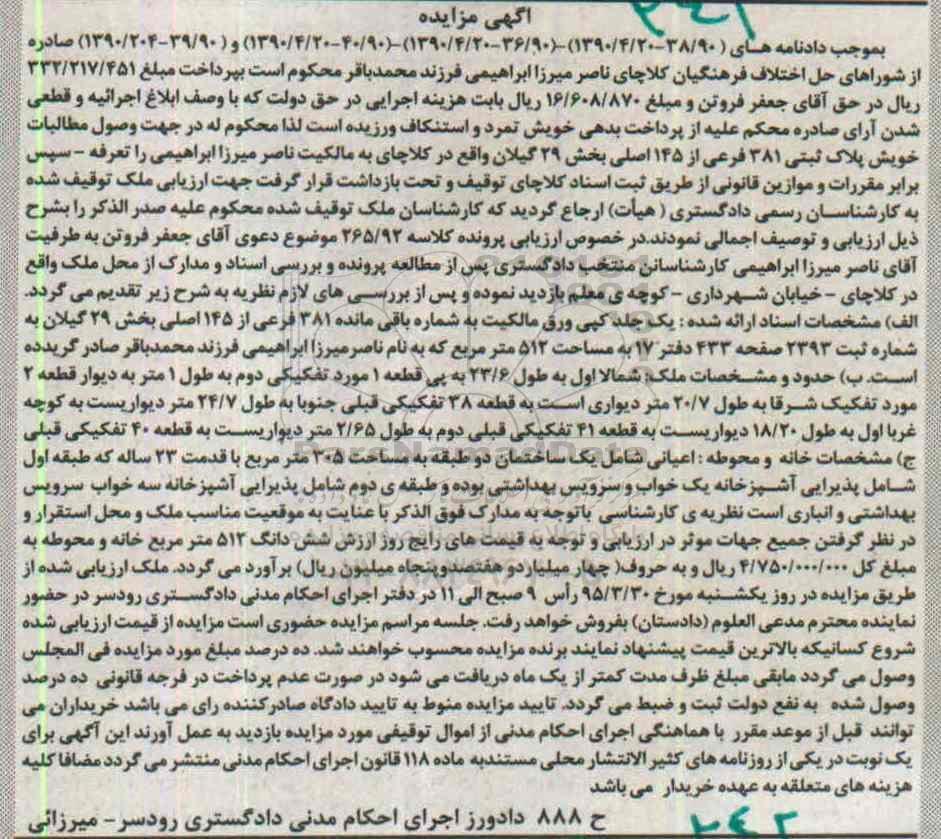 ۲۴۱
آگهی مزایده
بموجب دادنامه هـای ( ۳۸/۹۰-۱۳۹۰/۴/۲۰)-(۳۶/۹۰-۱۳۹۰/۴/۲۰)-(۴۰/۹۰-۱۳۹۰/۴/۲۰) و ( ۳۹/۹۰-۱۳۹۰/۲۰۴) صادره
از شوراهای حل اختلاف فرهنگیان کلاچای ناصر میرزا ابراهیمی فرزند محمدباقر محکوم است بپرداخت مبلغ ۳۳۲/۲۱۷/۴۵۱
ریال در حق آقای جعفر فروتن و مبلغ ۱۶/۶۰۸/۸۷۰ ریال بابت هزینه اجرایی در حق دولت که با وصف ابلاغ اجرائیه و قطعی
شدن آرای صادره محکم علیه از پرداخت بدهی خویش تمرد و استنکاف ورزیده است لذا محکوم له در جهت وصول مطالبات
خویش پلاک ثبتی ۳۸۱ فرعی از ۱۴۵ اصلی بخش ۲۹ گیلان واقع در کلاچای به مالکیت ناصر میرزا ابراهیمی را تعرفه - سپس
برابر مقررات و موازین قانونی از طریق ثبت اسناد کلاچای توقیف و تحت بازداشت قرار گرفت جهت ارزیابی ملک توقیف شده
به کارشناسان رسمی دادگستری ( هیأت) ارجاع گردید که کارشناسان ملک توقیف شده محکوم علیه صدر الذکر را بشرح
ذیل ارزیابی و توصیف اجمالی نمودند.در خصوص ارزیابی پرونده کلاسه ۲۶۵/۹۲ موضوع دعوی آقای جعفر فروتن به طرفیت
آقای ناصر میرزا ابراهیمی کارشناسانن منتخب دادگستری پس از مطالعه پرونده و بررسی اسناد و مدارک از محل ملک واقع
در کلاچای - خیابان شهرداری - کوچه ی معلم بازدید نموده و پس از بررسی های لازم نظریه به شرح زیر تقدیم می گردد.
الف) مشخصات اسناد ارائه شده : یک جلد کپی ورق مالکیت به شماره باقی مانده ۳۸۱ فرعی از ۱۴۵ اصلی بخش ۲۹ گیلان به
شماره ثبت ۲۳۹۳ صفحه ۴۳۳ دفتر ۱۷ به مساحت ۵۱۲ متر مربع که به نام ناصرمیرزا ابراهیمی فرزند محمدباقر صادر گریدده
است. ب) حدود و مشخصات ملک: شمالا اول به طول ۲۳/۶ به پی قطعه ۱ مورد تفکیکی دوم به طول ۱ متر به دیوار قطعه ۲
مورد تفکیک شرقا به طول ۲۰/۷ متر دیواری است به قطعه ۳۸ تفکیکی قبلی جنوبا به طول ۲۴/۷ متر دیواریست به کوچه
غربا اول به طول ۱۸/۲۰ دیواریست به قطعه ۴۱ تفکیکی قبلی دوم به طول ۲/۶۵ متر دیواریست به قطعه ۴۰ تفکیکی قبلی
ج) مشخصات خانه و محوطه : اعیانی شامل یک ساختمان دو طبقه به مساحت ۳۰۵ متر مربع با قدمت ۲۳ ساله که طبقه اول
شامل پذیرایی آشپزخانه یک خواب و سرویس بهداشتی بوده و طبقه ی دوم شامل پذیرایی آشپزخانه سه خواب سرویس
بهداشتی و انباری است نظریه ی کارشناسی باتوجه به مدارک فوق الذکر با عنایت به موقعیت مناسب ملک و محل استقرار و
در نظر گرفتن جمیع جهات موثر در ارزیابی و توجه به قیمت های رایج روز ارزش شش دانگ ۵۱۲ متر مربع خانه و محوطه به
مبلغ کل ۴/۷۵۰/۰۰۰/۰۰۰ ریال و به حروف( چهار میلیارد و هفتصدوپنجاه میلیون ریال) برآورد می گردد. ملک ارزیابی شده از
طریق مزایده در روز یکشنبه مورخ ۹۵/۳/۳۰ رأس ۹ صبح الی ۱۱ در دفتر اجرای احکام مدنی دادگستری رودسر در حضور
نماینده محترم مدعی العلوم (دادستان) بفروش خواهد رفت. جلسه مراسم مزایده حضوری است مزایده از قیمت ارزیابی شده
شروع کسانیکه بالاترین قیمت پیشنهاد نمایند برنده مزایده محسوب خواهند شد. ده درصد مبلغ مورد مزایده فی المجلس
وصول می گردد مابقی مبلغ ظرف مدت کمتر از یک ماه دریافت می شود در صورت عدم پرداخت در فرجه قانونی ده درصد
وصول شده به نفع دولت ثبت و ضبط می گردد. تایید مزایده منوط به تایید دادگاه صادرکننده رای می باشد خریداران می
توانند قبل از موعد مقرر با هماهنگی اجرای احکام مدنی از اموال توقیفی مورد مزایده بازدید به عمل آورند این آگهی برای
یک نوبت در یکی از روزنامه های کثیر الانتشار محلی مستندبه ماده ۱۱۸ قانون اجرای احکام مدنی منتشر می گردد مضافا کلیه
هزینه های متعلقه به عهده خریدار می باشد
ح ۸۸۸ دادورز اجرای احکام مدنی دادگستری رودسر- میرزائی
۲۴۲